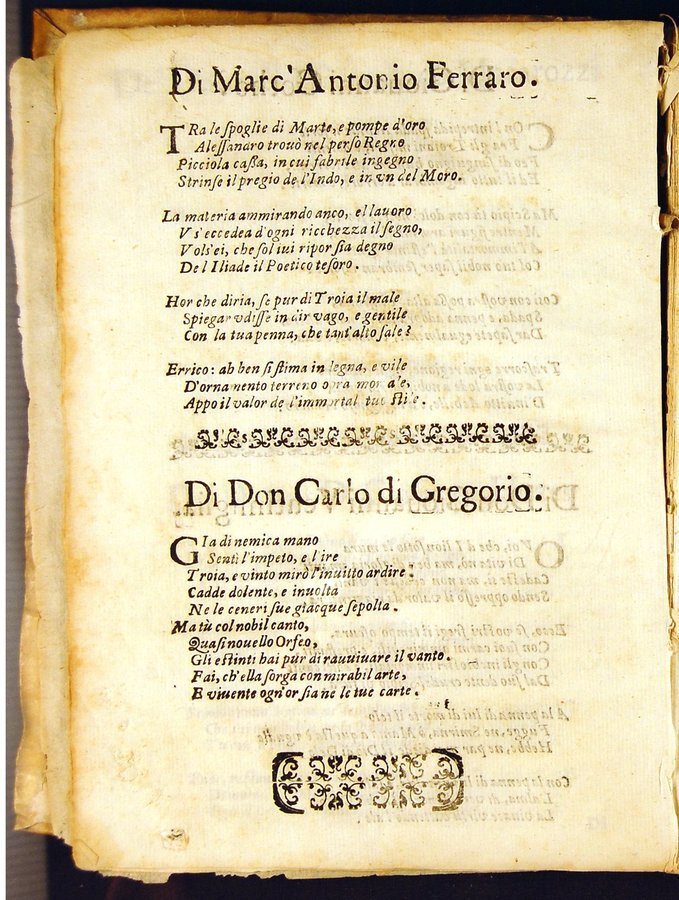 Di Marc'Antonio Ferraro.
TRa le ſpoglie di Marte, e pompe d'oro
Aleſſandro trouò nel perſo Regno
Picciola caſſa, in cui fabrile ingegno
Strinſe il pregio de l'Indo, e in vn del Moro.
La materia ammirando anco, e'l lauoro
Vs'eccedea d'ogni ricchezza il ſegno,
Volſ'ei, che ſol iui ripor ſia degno
De l Iliade il Poetico teſoro.
Hor che diria, ſe pur di Troia il male
Spiegar vdiſſe in dir vago, e gentile
Con la tua penna, che tant'alto ſale?
Errico: ah ben ſi ſtima in legna, e vile
D'ornamento terreno opra mortale,
Appo il valor de l'immortal tuo ſtile.
Di Don Carlo di Gregorio.
GIa di nemica mano
Sentì l'impeto, e l'ire
Troia, e vinto mirò l'inuitto ardire:
Cadde dolente, e inuolta
Ne le ceneri ſue giacque ſepolta.
Ma tù col nobil canto,
Quaſi nouello Orfeo,
Gli eſtinti hai pur di rauuiuare il vanto.
Fai, ch'ella ſorga con mirabil arte,
E viuente ogn'or ſia ne le tue carte.